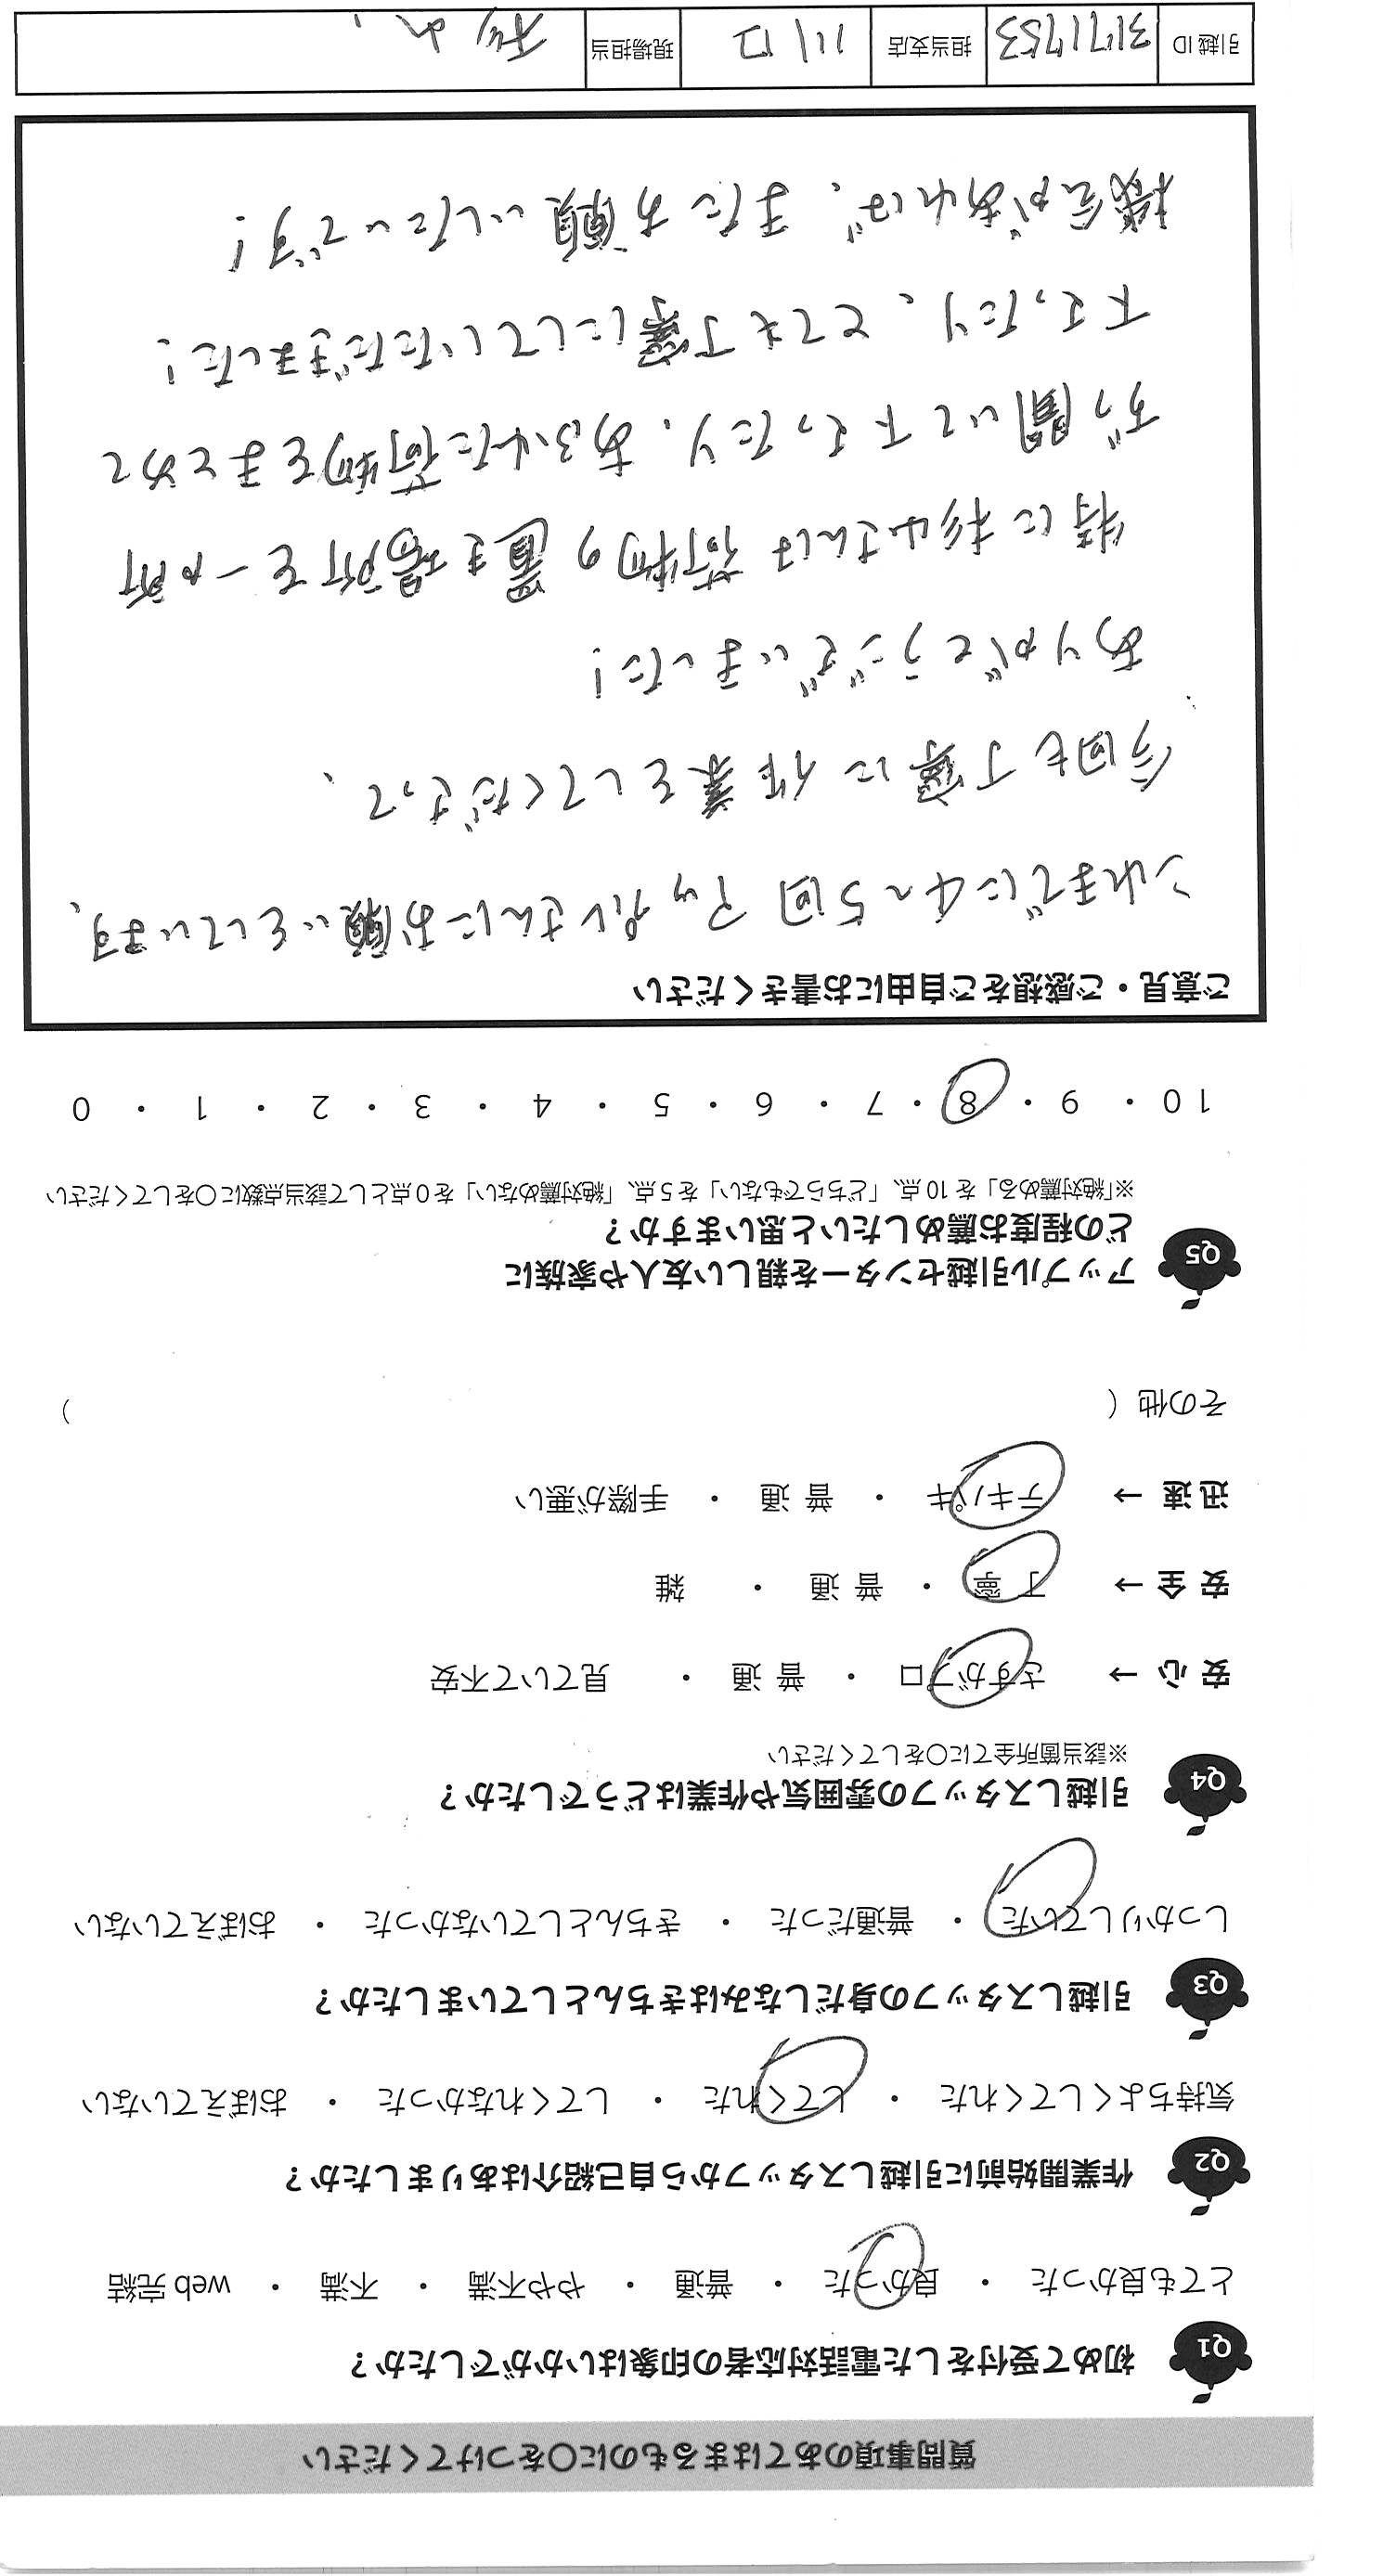 質問事項のあてはまるものに〇をつけてください
Q1 初めて受付をした電話対応者の印象はいかがでしたか？
とても良かった ・ 良かった ・ 普通 ・ やや不満 ・ 不満 ・ web 完結
Q2 作業開始前に引越しスタッフから自己紹介はありましたか？
気持ちよくしてくれた ・ してくれた ・ してくれなかった ・ おぼえていない
Q3 引越しスタッフの身だしなみはきちんとしていましたか？
しっかりしていた ・ 普通だった ・ きちんとしていなかった ・ おぼえていない
Q4 引越しスタッフの雰囲気や作業はどうでしたか？
※該当箇所全てに〇をしてください
安 心 → さすがプロ ・ 普 通 ・ 見ていて不安
安 全 → 丁 寧 ・ 普 通 ・ 雑
迅 速 → テキパキ ・ 普 通 ・ 手際が悪い
その他（ ）
Q5 アップル引越センターを親しい友人や家族に
どの程度お薦めしたいと思いますか？
※「絶対薦める」を 10 点、「どちらでもない」を 5 点、「絶対薦めない」を 0 点として該当点数に〇をしてください
10 ・ 9 ・ 8 ・ 7 ・ 6 ・ 5 ・ 4 ・ 3 ・ 2 ・ 1 ・ 0
ご意見・ご感想をご自由にお書きください
これまでに4〜5回アップルさんにお願いをしています、
今回も丁寧に作業をしてくださって、
ありがとうございました！
特に杉山さんは荷物の置き場所を一か所
ずつ聞いて下さったり、あふれた荷物をまとめて
下さったり、とても丁寧にしていただきました！
機会があれば、またお願いしたいです！
引越 ID 3171753 担当支店 川口 現場担当 杉山